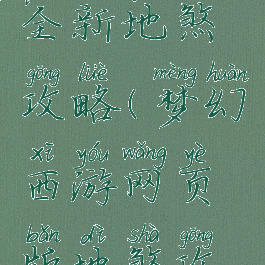 全新地煞
gōng lüè mèng huàn
攻略(梦幻
xī yóu wǎng yè
西游网页
bǎn dì shà gōng
版地煞攻